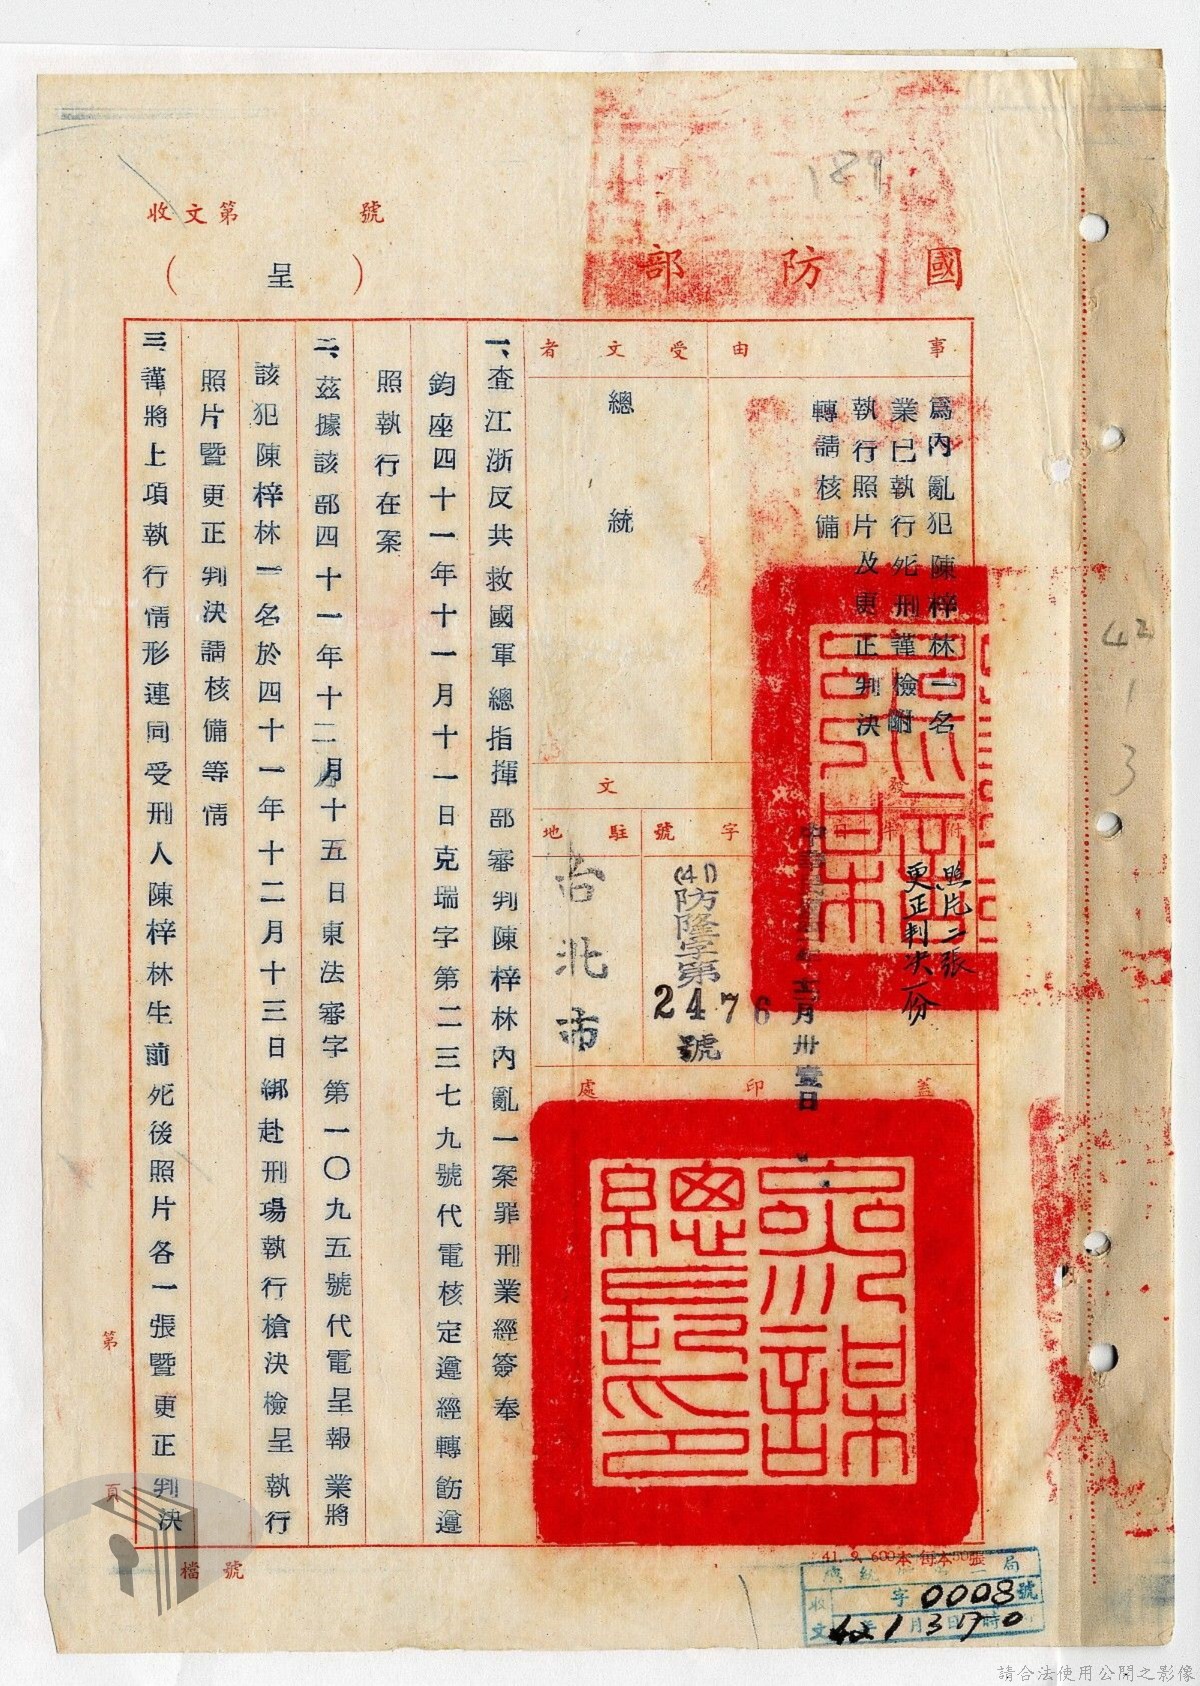 國防部
（呈）
收文第　　號
189
事由
為內亂犯陳梓林一名
業已執行死刑謹檢附
執行照片及更正判決
轉請核備
受文者
總統
發文
附件
照片二張
更正判決一份
月卅壹日
字號
(41)防隆字第
2476
號
駐地
台北市
蓋印處
參謀總長之印
一、查江浙反共救國軍總指揮部審判陳梓林內亂一案罪刑業經簽奉
鈞座四十一年十一月十一日克瑞字第二三七九號代電核定遵經轉飭遵
照執行在案
二、茲據該部四十一年十二月十五日東法審字第一〇九五號代電呈報業將
該犯陳梓林一名於四十一年十二月十三日綁赴刑場執行槍決檢呈執行
照片暨更正判決請核備等情
三、謹將上項執行情形連同受刑人陳梓林生前死後照片各一張暨更正判決
第　頁
檔號
41.9.600本每本50張
局
收文　字0008號
42年1月3日17時0
42
1
3
請合法使用公開之影像